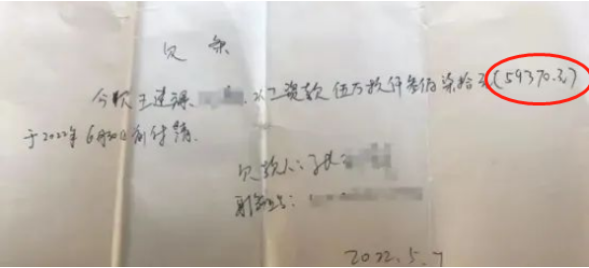 欠条
今欠王 工资款伍万玖仟叁佰柒拾元(59370.元)
于2022年6月30日前付清.
欠款人:张
身份证:
2022.5.7